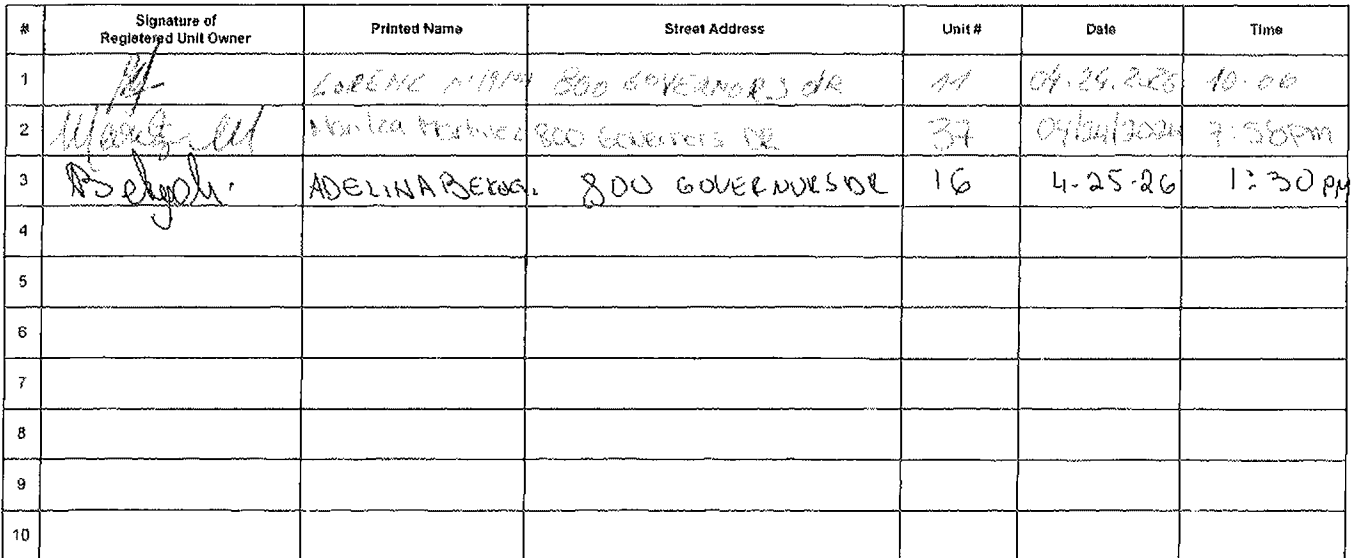 # Signature of Registered Unit Owner Printed Name Street Address Unit # Date Time
1 LORENC 800 GOVERNORS dR 11 04.24.2026 10.00
2 Martinez 800 Governors DR 37 04/24/2026 7:56pm
3 ADELINA 800 GOVERNORS DR 16 4-25-26 1:30 PM
4
5
6
7
8
9
10